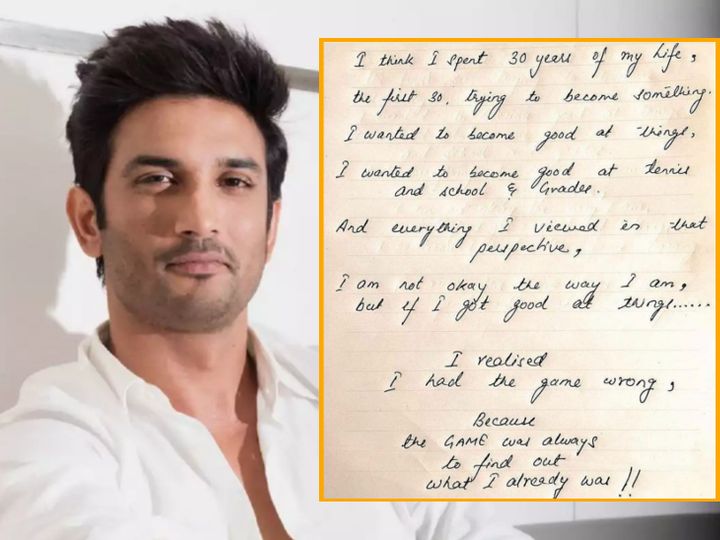 I think I spent 30 years of my life,
the first 30, trying to become something.
I wanted to become good at things,
I wanted to become good at tennis
and school & Grades.
And everything I viewed in that
perspective,
I am not okay the way I am,
but if I got good at things......
I realised
I had the game wrong,
Because
the GAME was always
to find out
what I already was !!